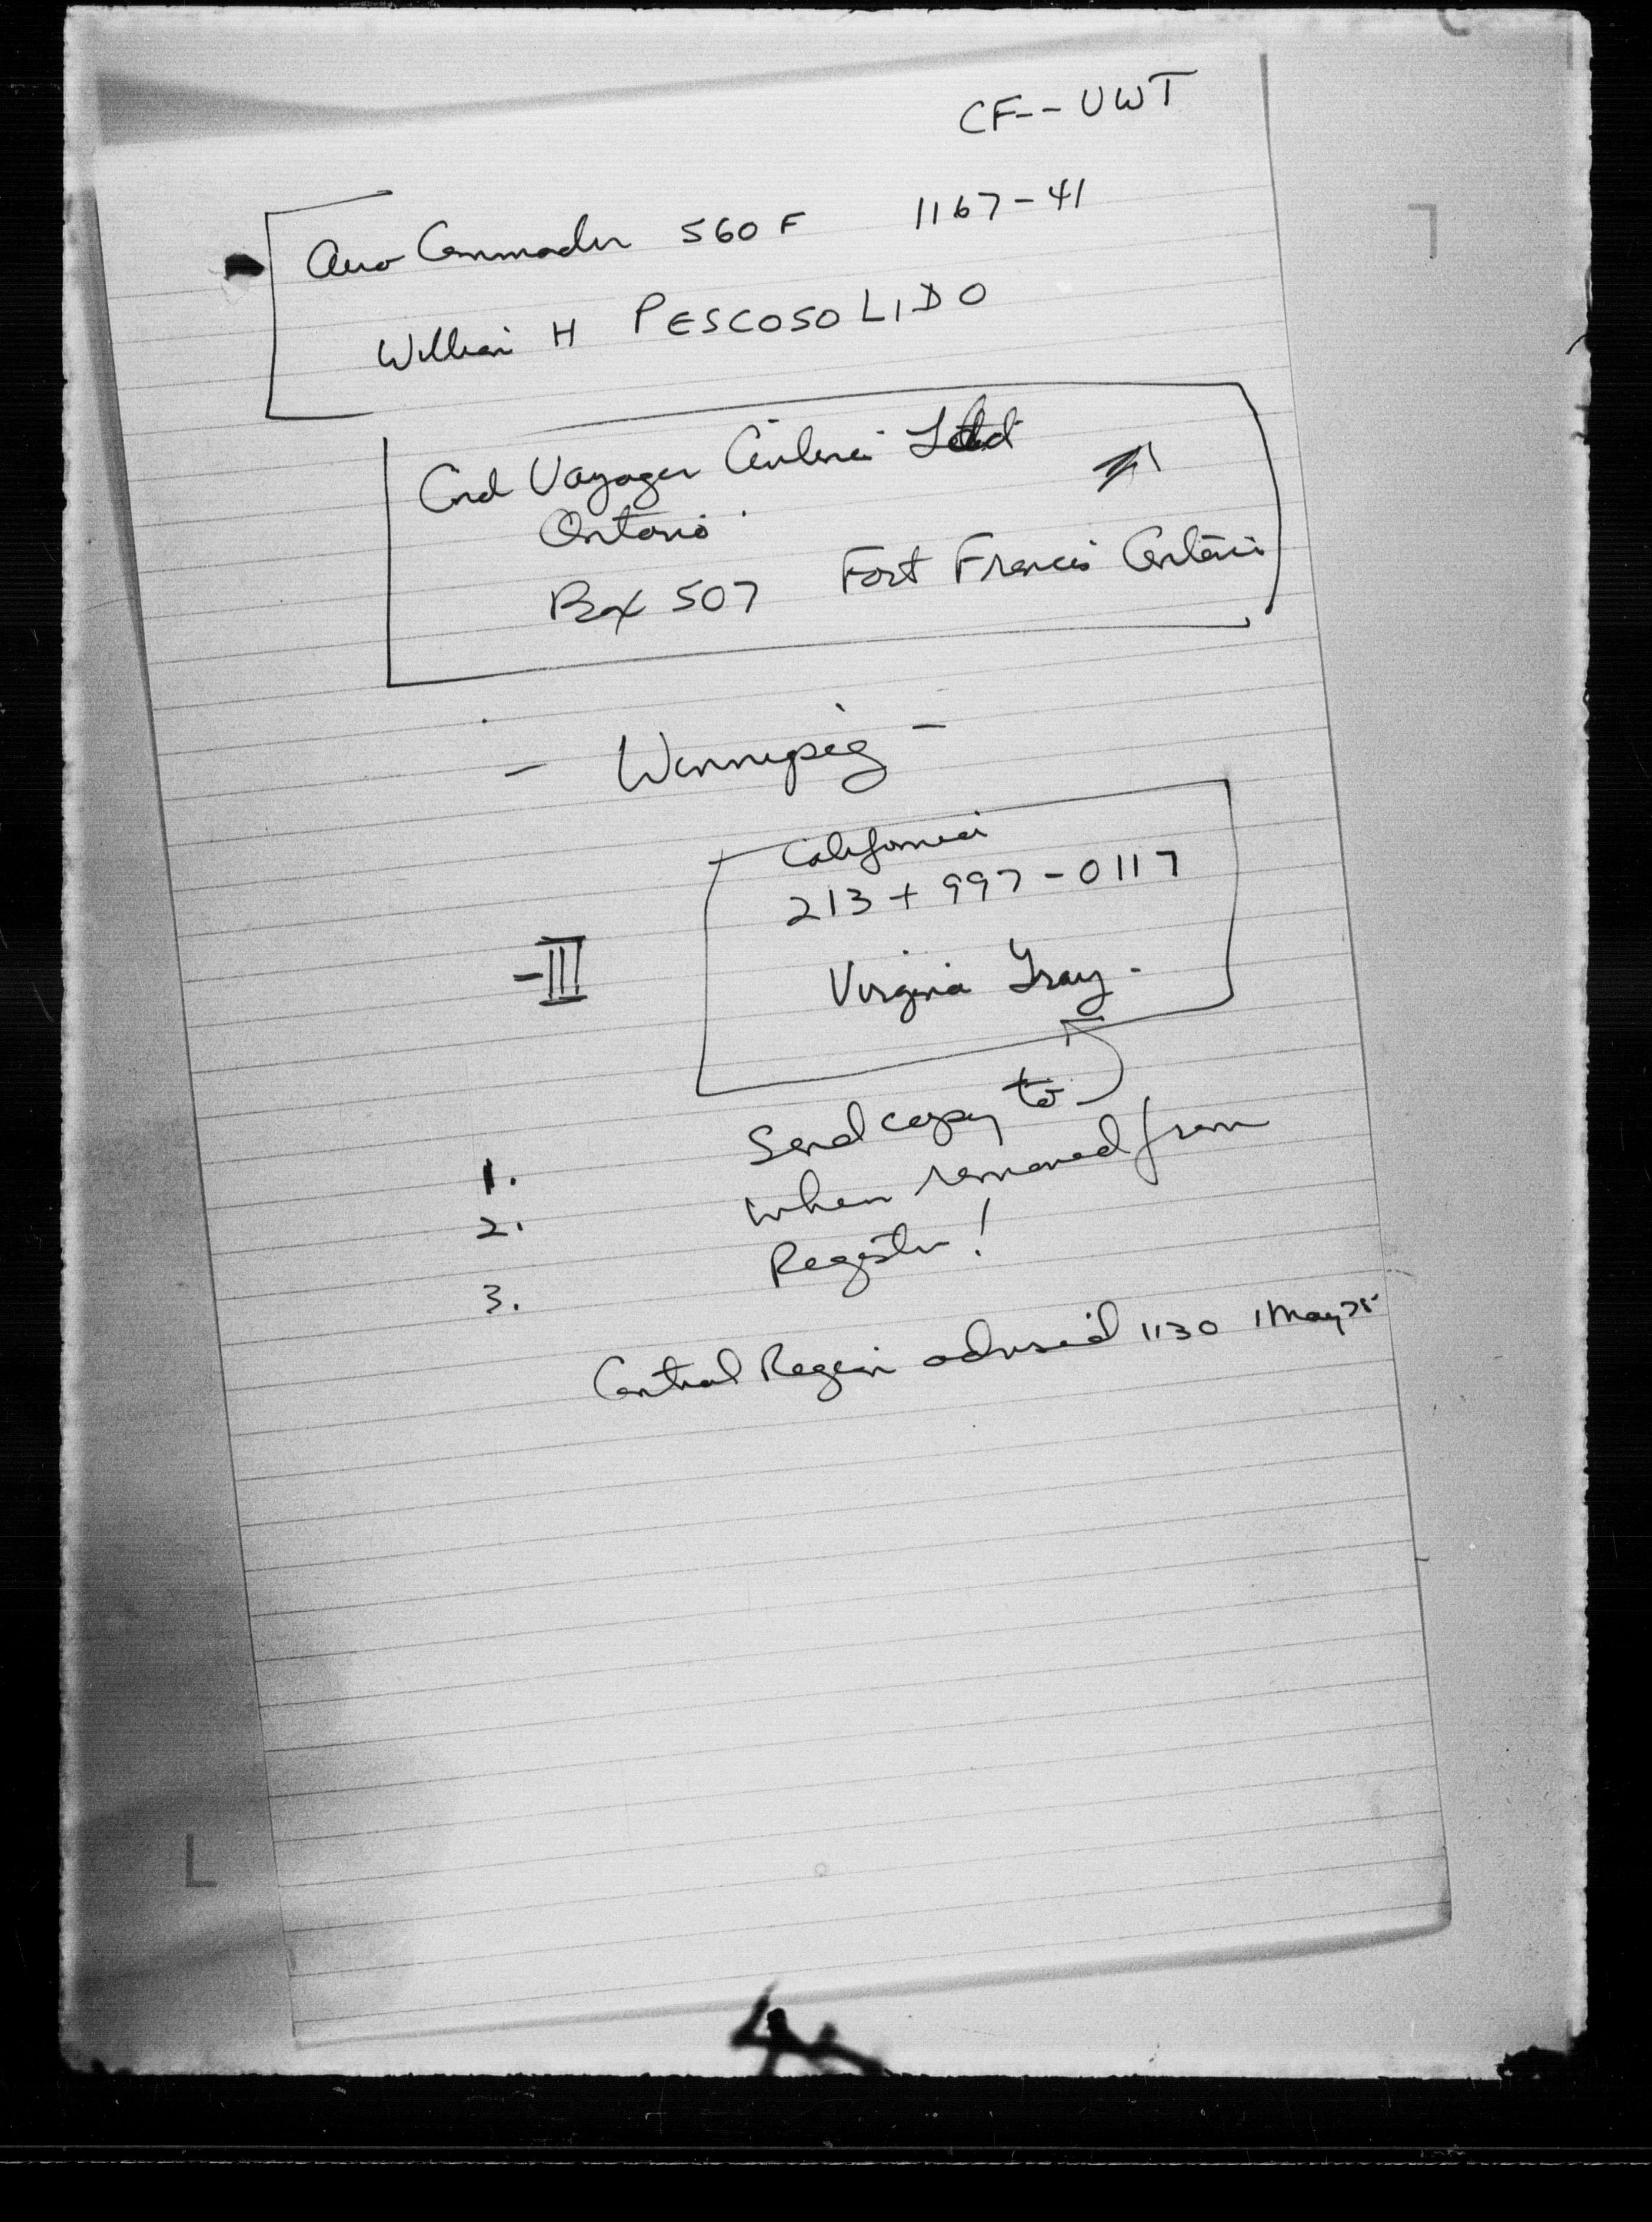 CF--UWT
Aero Commander 560F 1167-41
William H PESCOSOLIDO
Voyager Airlines Ltd
Ontario
Box 507 Fort Francis Ontario
- Winnipeg -
California
213 + 997-0117
-III
Virginia Gray -
Send copy to
1.
when removed from
2.
Register!
3.
Central Region advised 1130 1 May 75